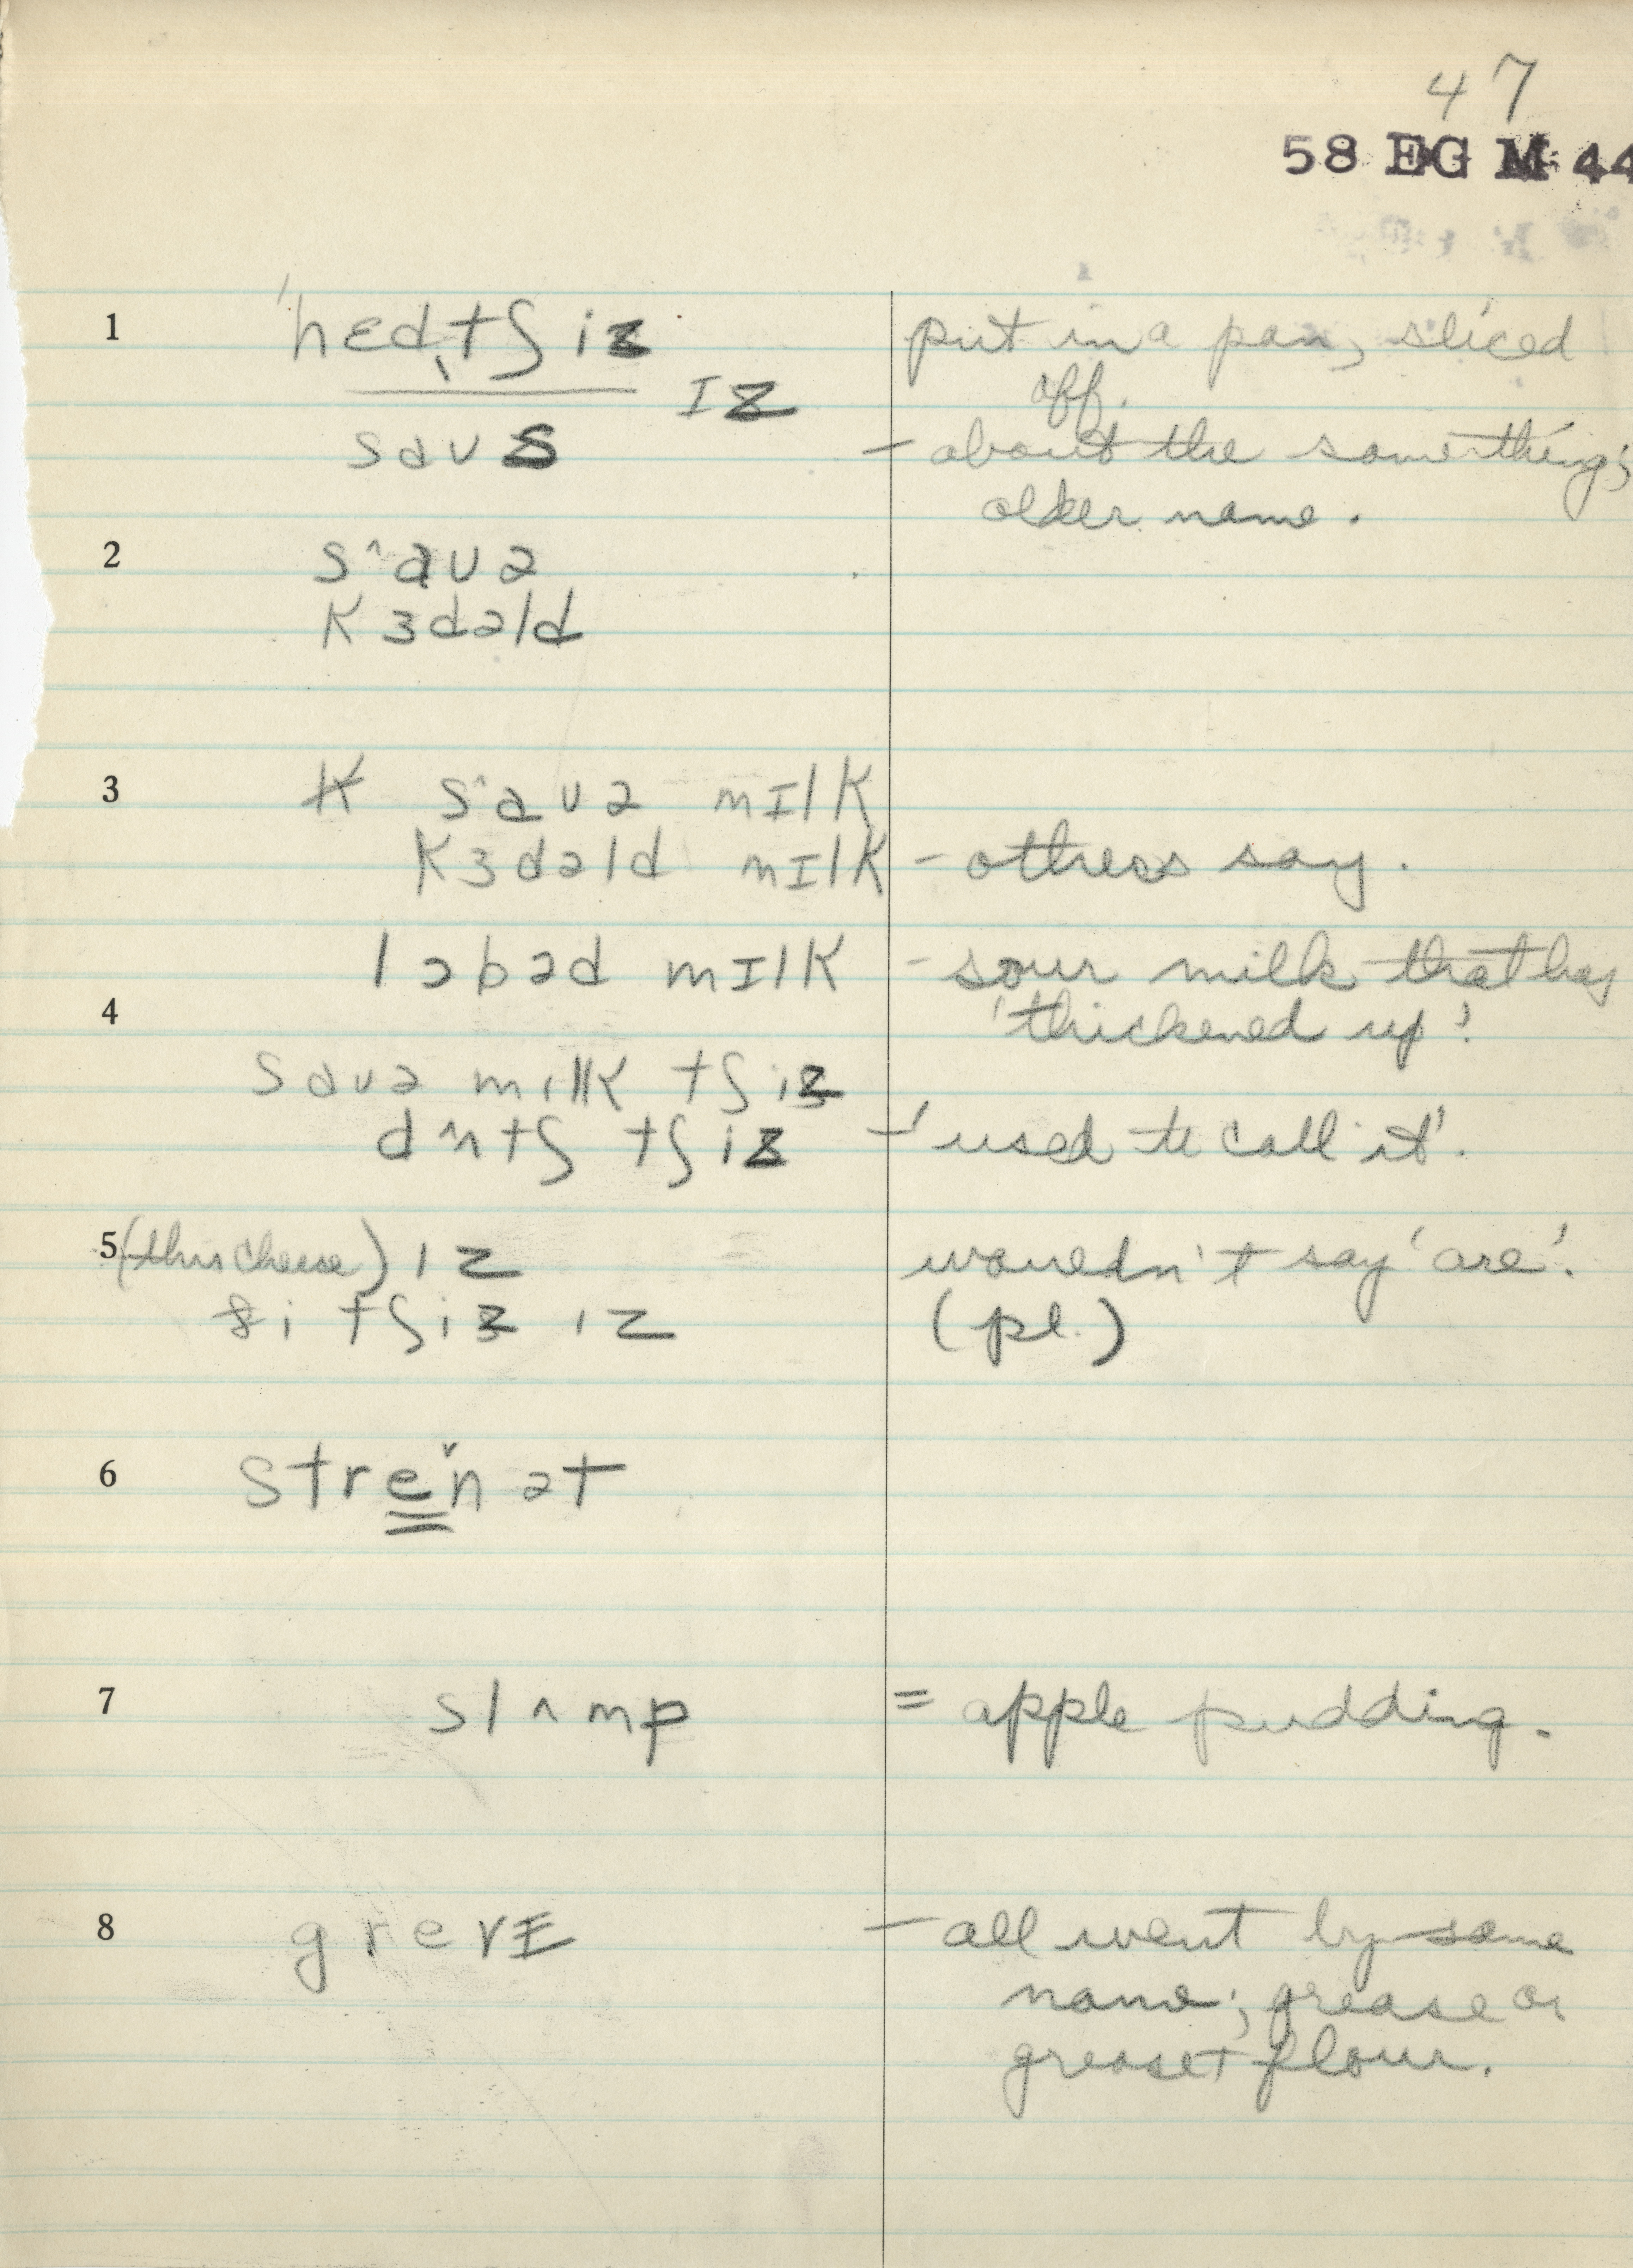 47
58 EG M 44
1 ˈhɛd̥tʃiz put in a pan, sliced
ɪz off.
saʊs – about the same thing;
older name.
2 sˆaʊə
kɜdəld
3 sˆaʊə mɪlk
kɜdəld milk – others say.
lɔbəd mɪlk – sour milk that has
4 'thickened up'.
saʊə mɪlk tʃiz
dʌtʃ tʃiz – 'used to call it'.
5 (this cheese) ɪz wouldn't say 'are'.
ði tʃiz ɪz (pl.)
6 strenət
7 slʌmp = apple pudding.
8 grevɪ – all went by same
name; grease or
grease + flour.